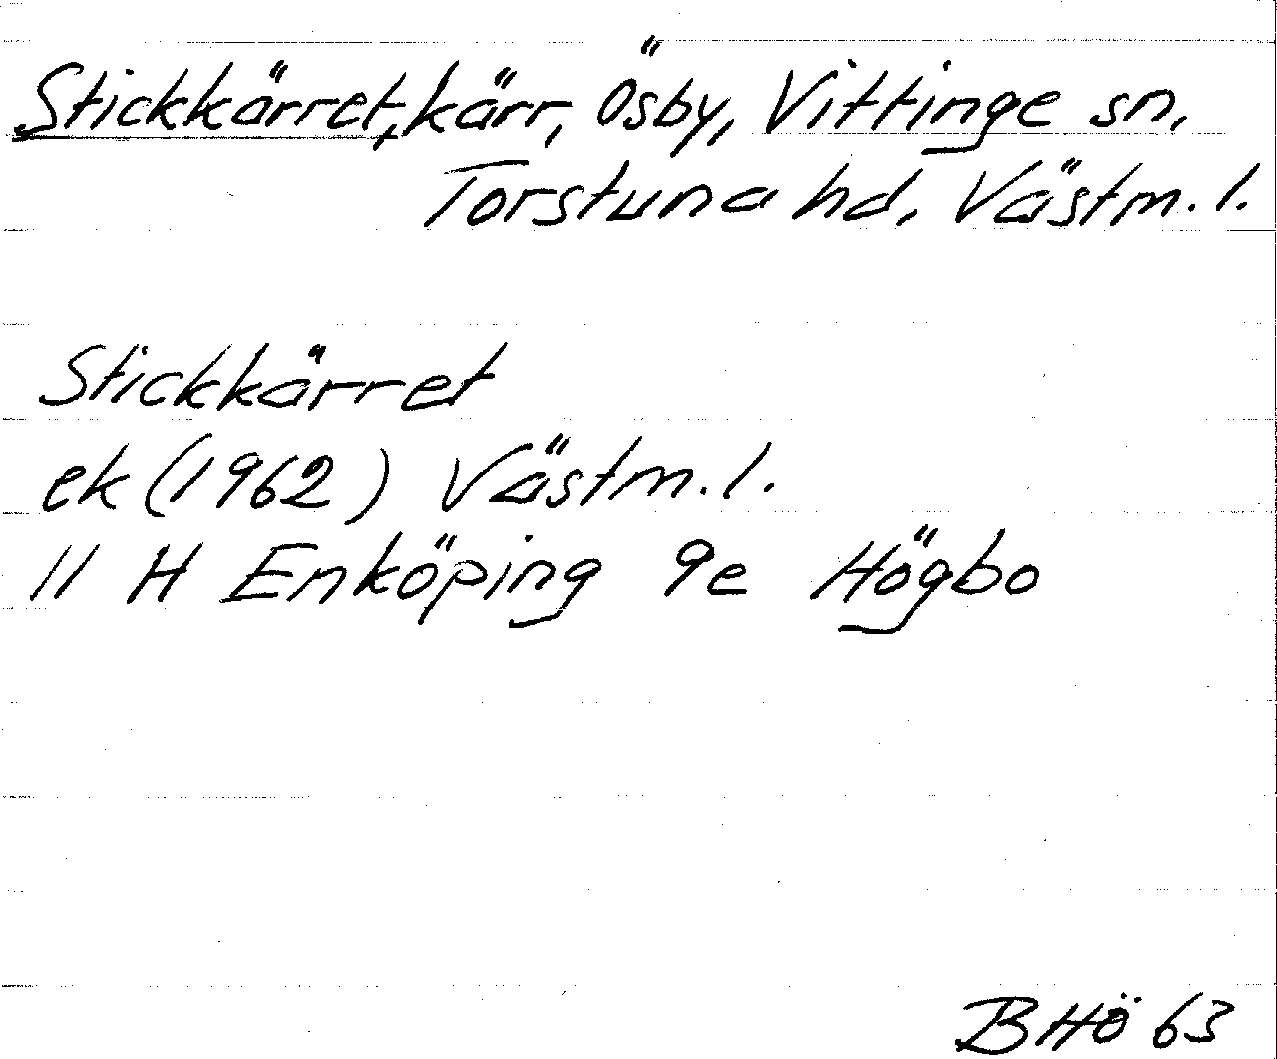 Stickkärret, kärr, Ösby, Vittinge sn,
Torstuna hd, Västm. l.
Stickkärret
ek (1962) Västm. l.
11 H Enköping 9e Högbo
BHÖ 63